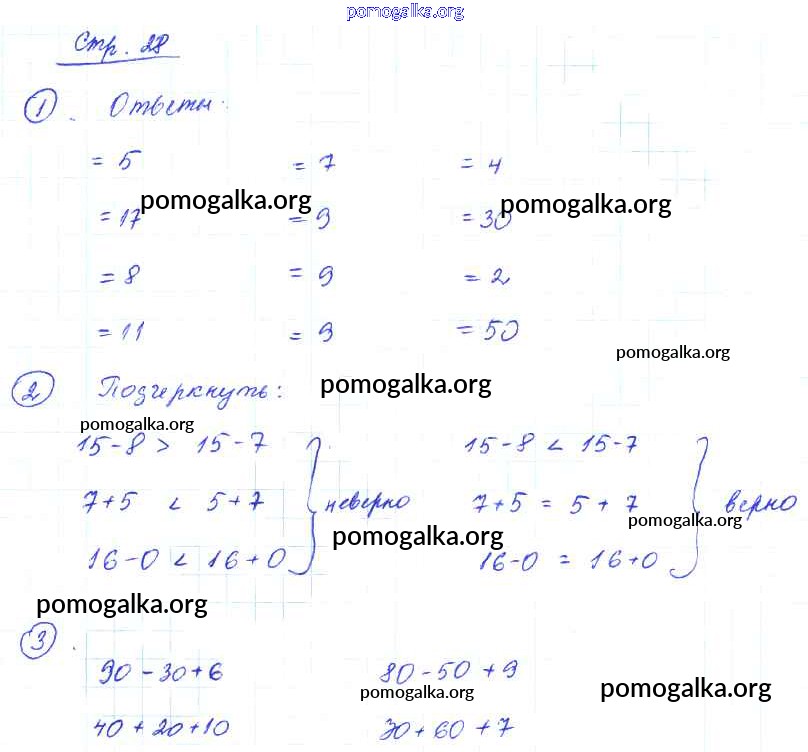 pomogalka.org
Стр. 28
1. Ответы:
= 5 = 7 = 4
= 17 pomogalka.org = 9 = 30 pomogalka.org
= 8 = 9 = 2
= 11 = 9 = 50
pomogalka.org
2 Подчеркнуть: pomogalka.org
pomogalka.org
15-8 > 15-7 15-8 < 15-7
7+5 < 5+7 } неверно 7+5 = 5+7 } верно
pomogalka.org
pomogalka.org
16-0 < 16+0 16-0 = 16+0
pomogalka.org
3.
90-30+6 80-50+9
pomogalka.org pomogalka.org
40+20+10 30+60+7